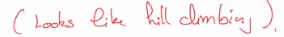 (Looks like hill climbing).